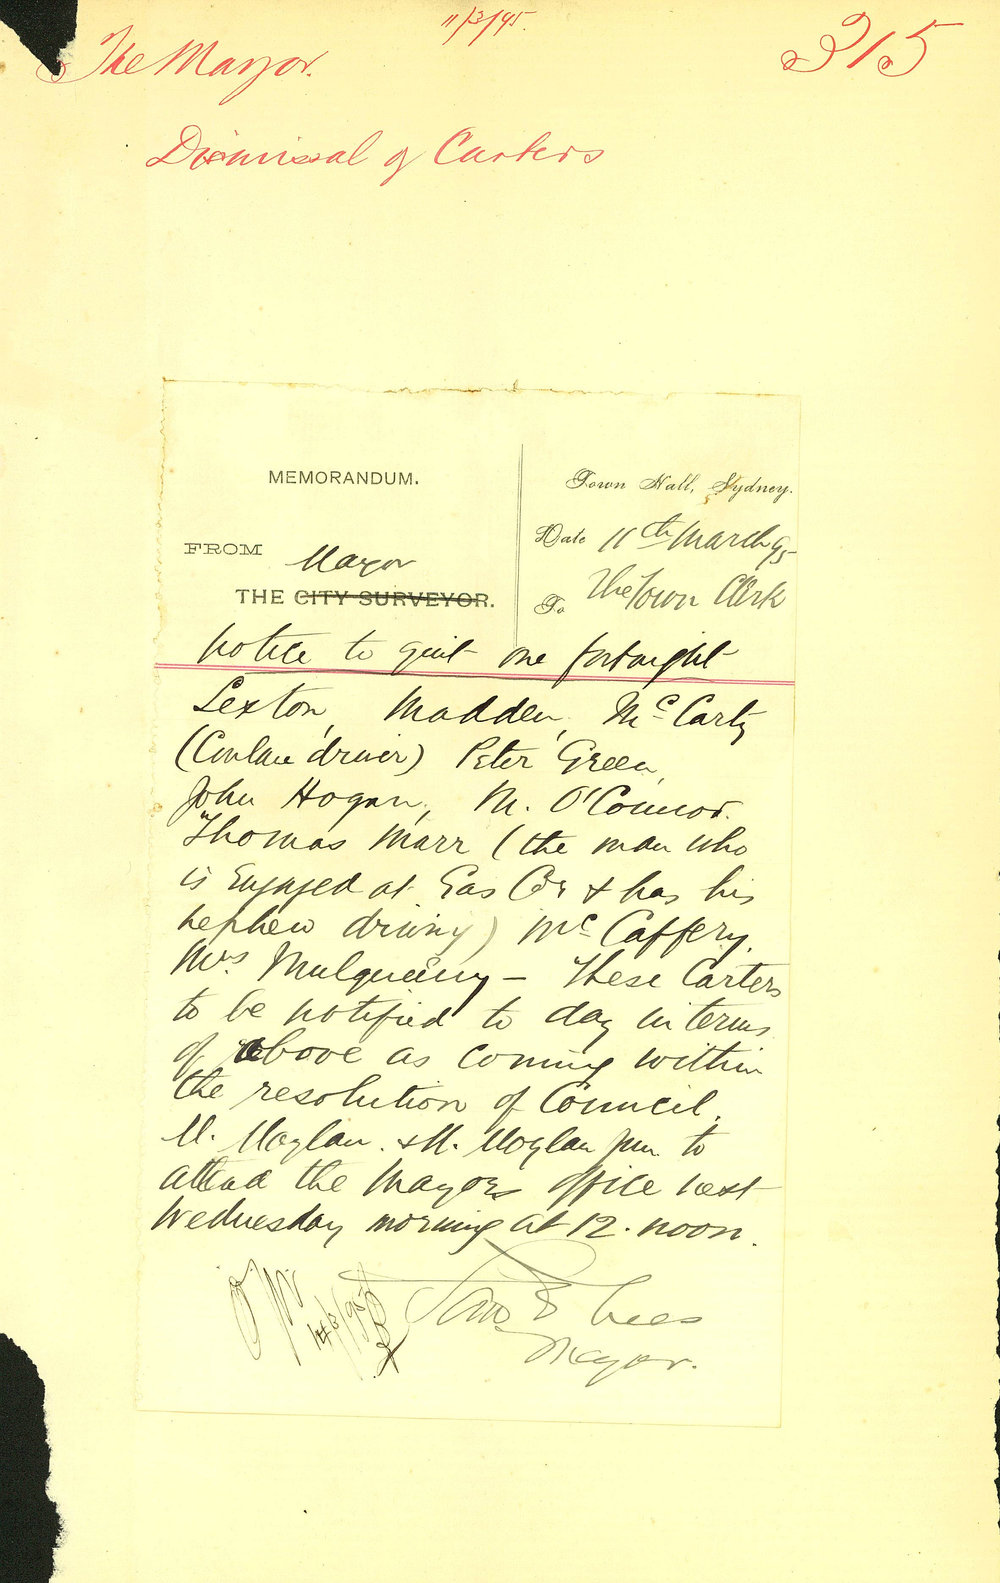 11/3/95.
The Mayor.
315
Dismissal of Carters
MEMORANDUM.
Town Hall, Sydney.
Date 11th March 95
FROM Mayor
THE CITY SURVEYOR.
To The Town Clerk
Notice to quit one fortnight
Sexton, Madden, McCarty
(Conlan driver) Peter Green,
John Hogan, M. O'Connor.
Thomas Marr (the man who
is Engaged at Gas Co's & has his
nephew driving) McCaffery.
Mrs Mulqueeny - These Carters
to be notified to day in terms
of above as coming within
the resolution of Council.
M. Moylan. & M. Moylan Jun. to
attend the Mayors office next
Wednesday morning at 12. noon.
14/3/95
Sam E Lees
Mayor.